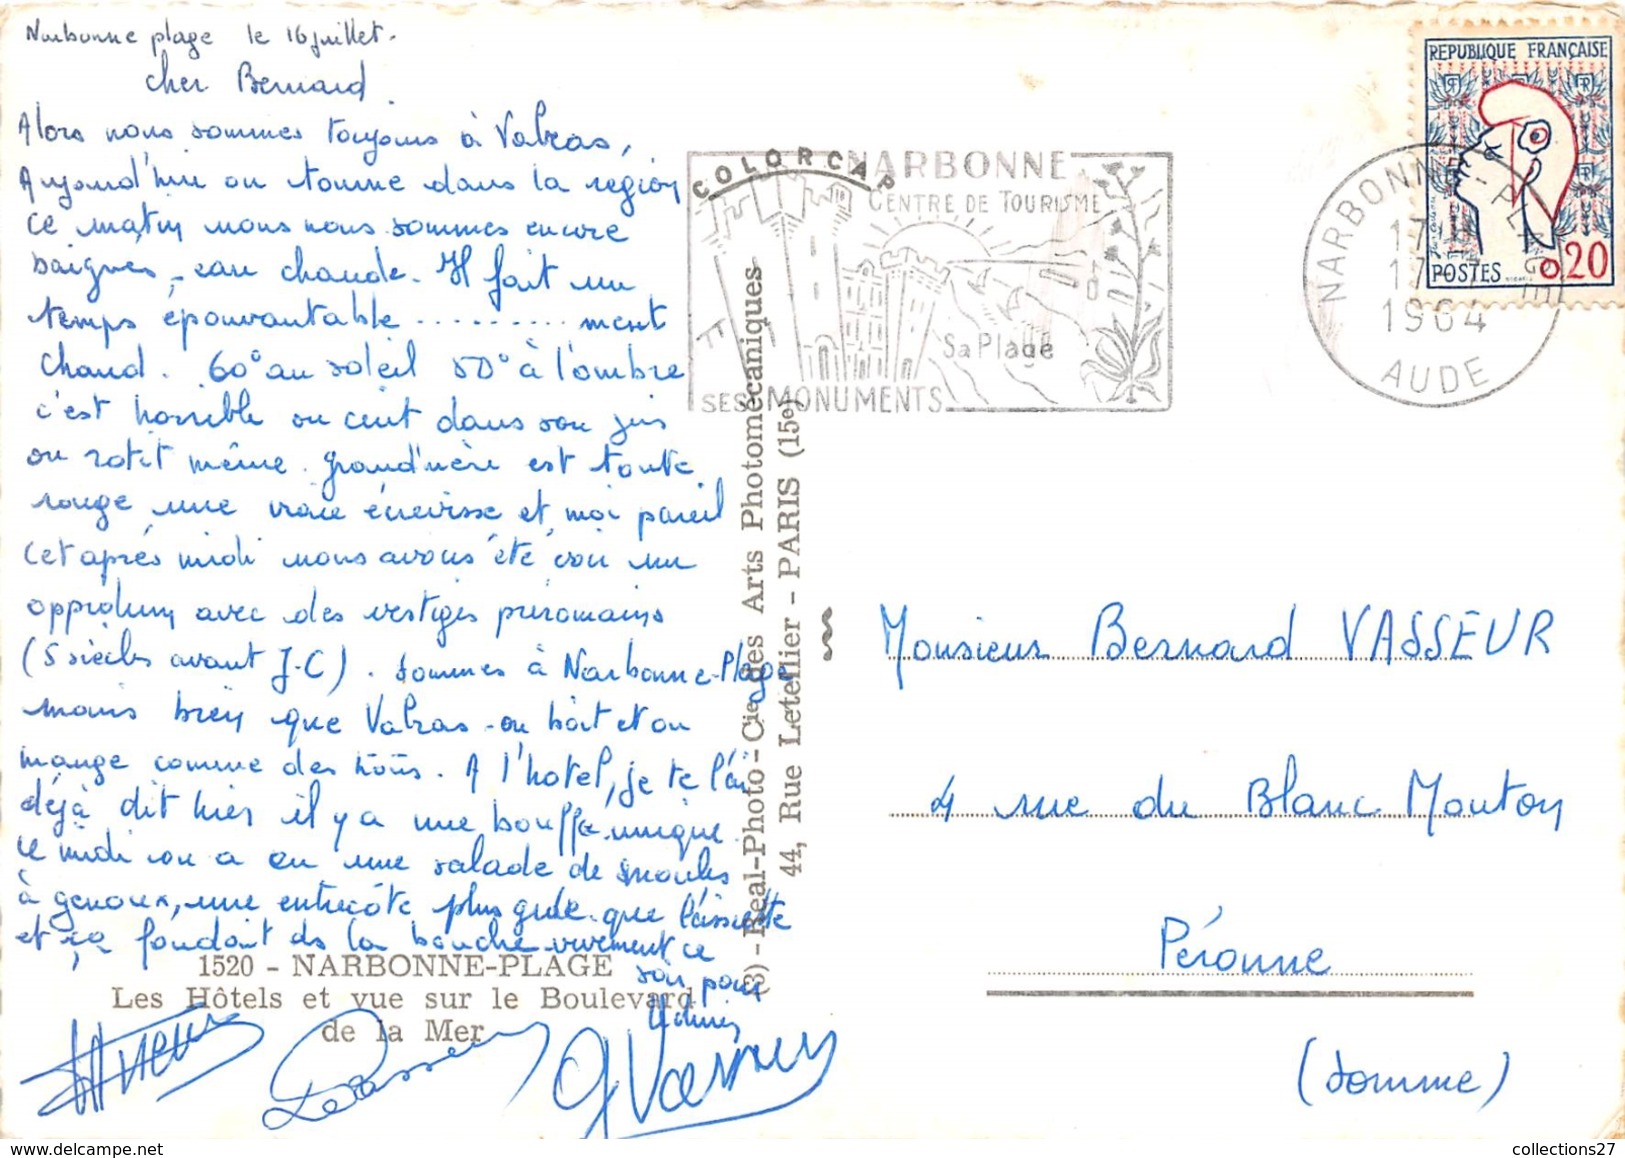 Narbonne plage le 16 juillet.
cher Bernard.
Alors nous sommes toujours à Valras,
Aujourd'hui on tourne dans la region
ce matin nous nous sommes encore
baignés, eau chaude. Il fait un
temps épouvantable .......... ment
chaud. 60° au soleil 50° à l'ombre
c'est horrible on cuit dans son jus
on rotit même. grand'mère est toute
rouge une vraie écrevisse et moi pareil
Cet après midi nous avons été voir un
oppidum avec des vestiges préromains
(5 siècles avant J-C). Sommes à Narbonne-Plage
moins bien que Valras - on boit et on
mange comme des trous. A l'hotel, je te l'ai
déjà dit hier il y a une bouffe unique.
ce midi on a eu une salade de moules
à genoux, une entrecôte plus grde que l'assiette
et ça fondait ds la bouche vivement ce
soir pour
1520 - NARBONNE-PLAGE
Les Hôtels et vue sur le Boulevard
de la Mer
G Vasseur
(3) - Réal-Photo - Cie des Arts Photomécaniques
44, Rue Letellier - PARIS (15e)
COLORCAP
NARBONNE
CENTRE DE TOURISME
Sa Plage
SES MONUMENTS
NARBONNE-PLAGE
17
17
1964
AUDE
REPUBLIQUE FRANÇAISE
RF
RF
POSTES
0,20
Monsieur Bernard VASSEUR
4 rue du Blanc Mouton
Péronne
(Somme)
collections27